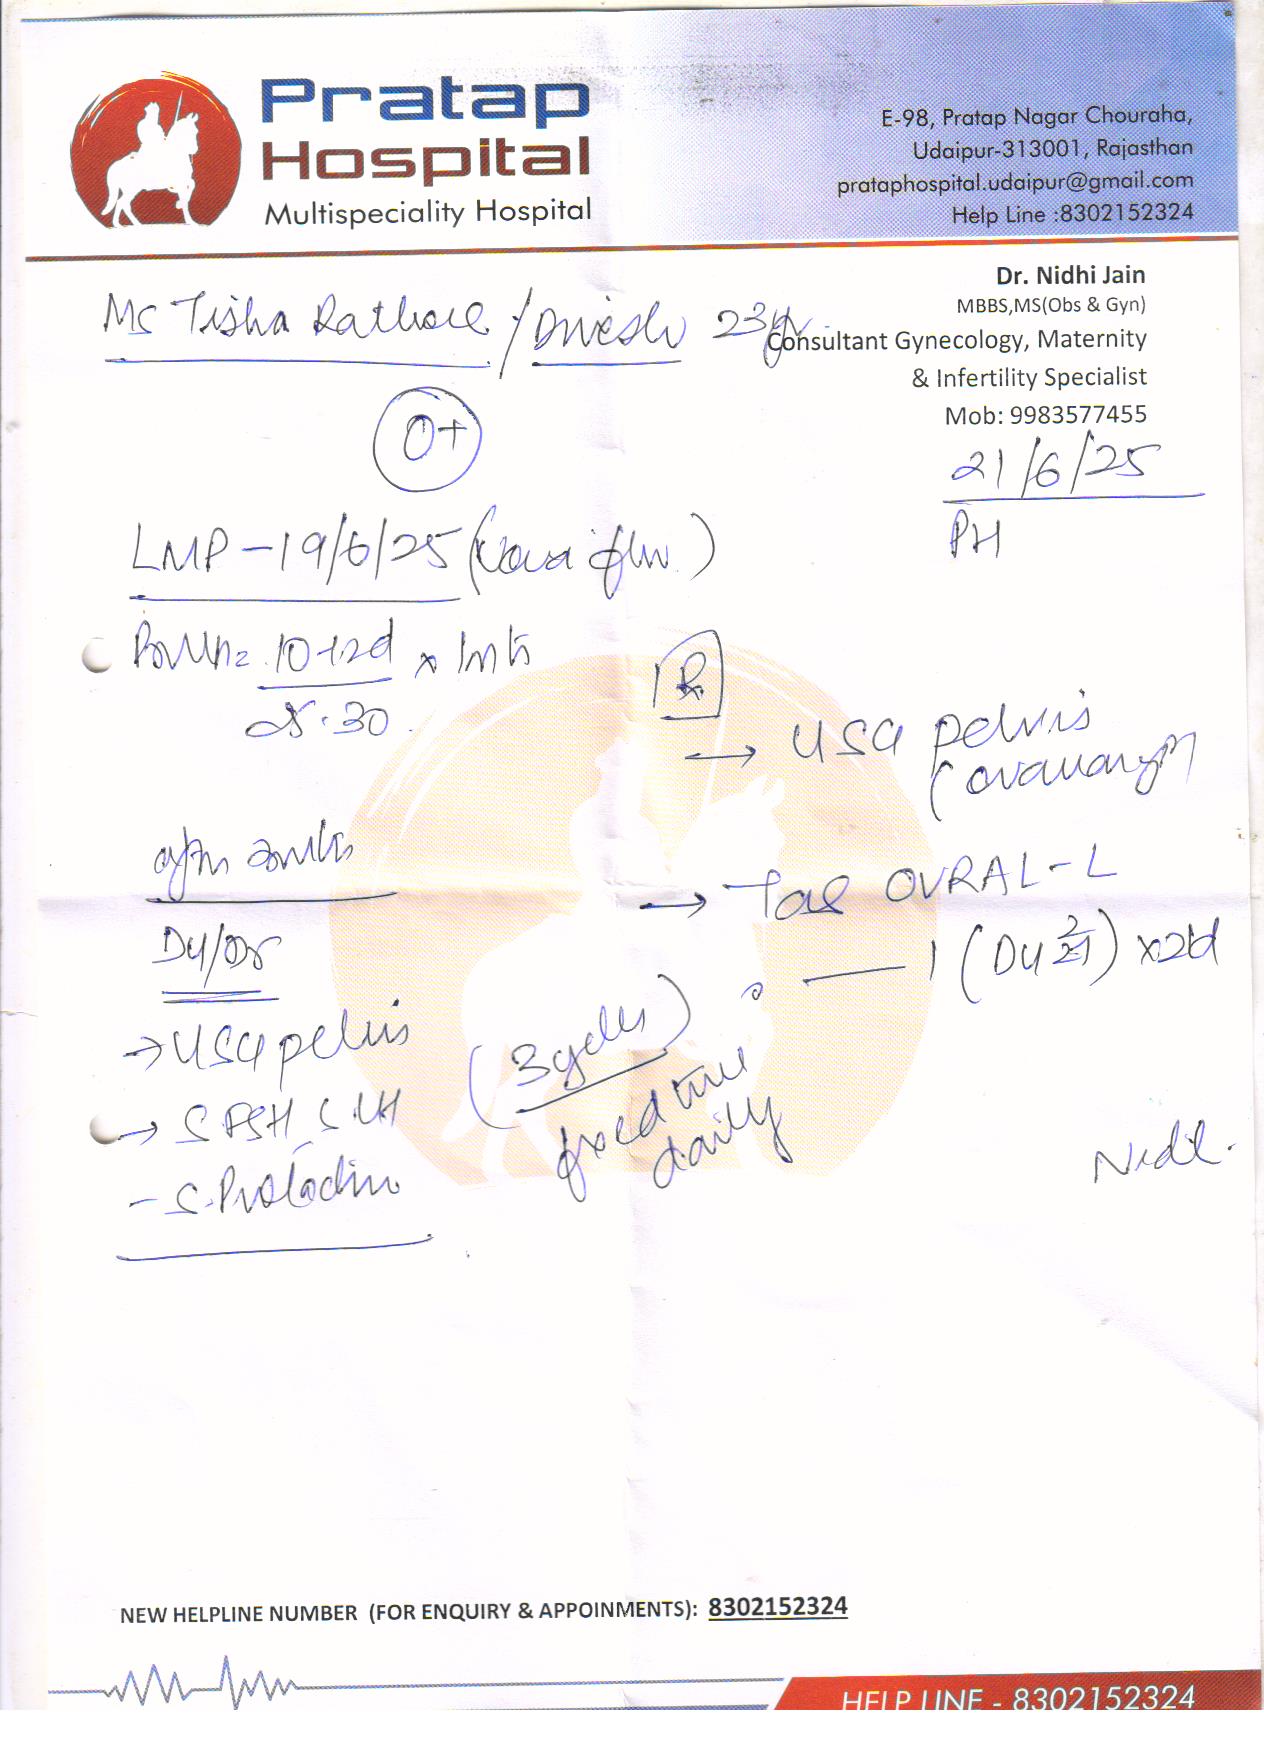 Pratap
Hospital
Multispeciality Hospital
E-98, Pratap Nagar Chouraha,
Udaipur-313001, Rajasthan
prataphospital.udaipur@gmail.com
Help Line :8302152324
Dr. Nidhi Jain
MBBS,MS(Obs & Gyn)
Consultant Gynecology, Maternity
& Infertility Specialist
Mob: 9983577455
Ms Tisha Rathore / Dinesh 23
O+
21/6/25
PH
LMP - 19/6/25
10-12d x
30
R
→ USG pelvis
Day/
→ Tab OVRAL-L
1 (D4 ) x21d
→ USG pelvis
(3 cycles)
fixed time
daily
→ S FSH S LH
- S. Prolactin
Nidhi
NEW HELPLINE NUMBER (FOR ENQUIRY & APPOINMENTS): 8302152324
HELP LINE - 8302152324